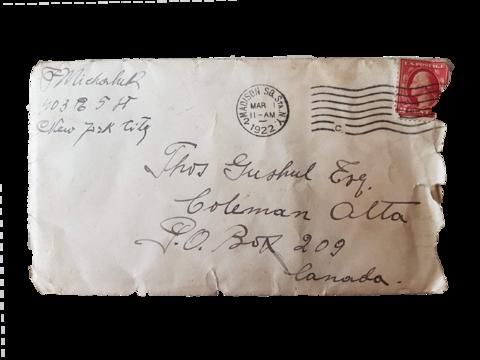 403 E 5 St
New York City
MADISON SQ. STA. N.Y.
MAR 1
11-AM
1922
2
C
U.S. POSTAGE
Thos Gushul Esq.
Coleman Alta
P.O. Box 209
Canada.